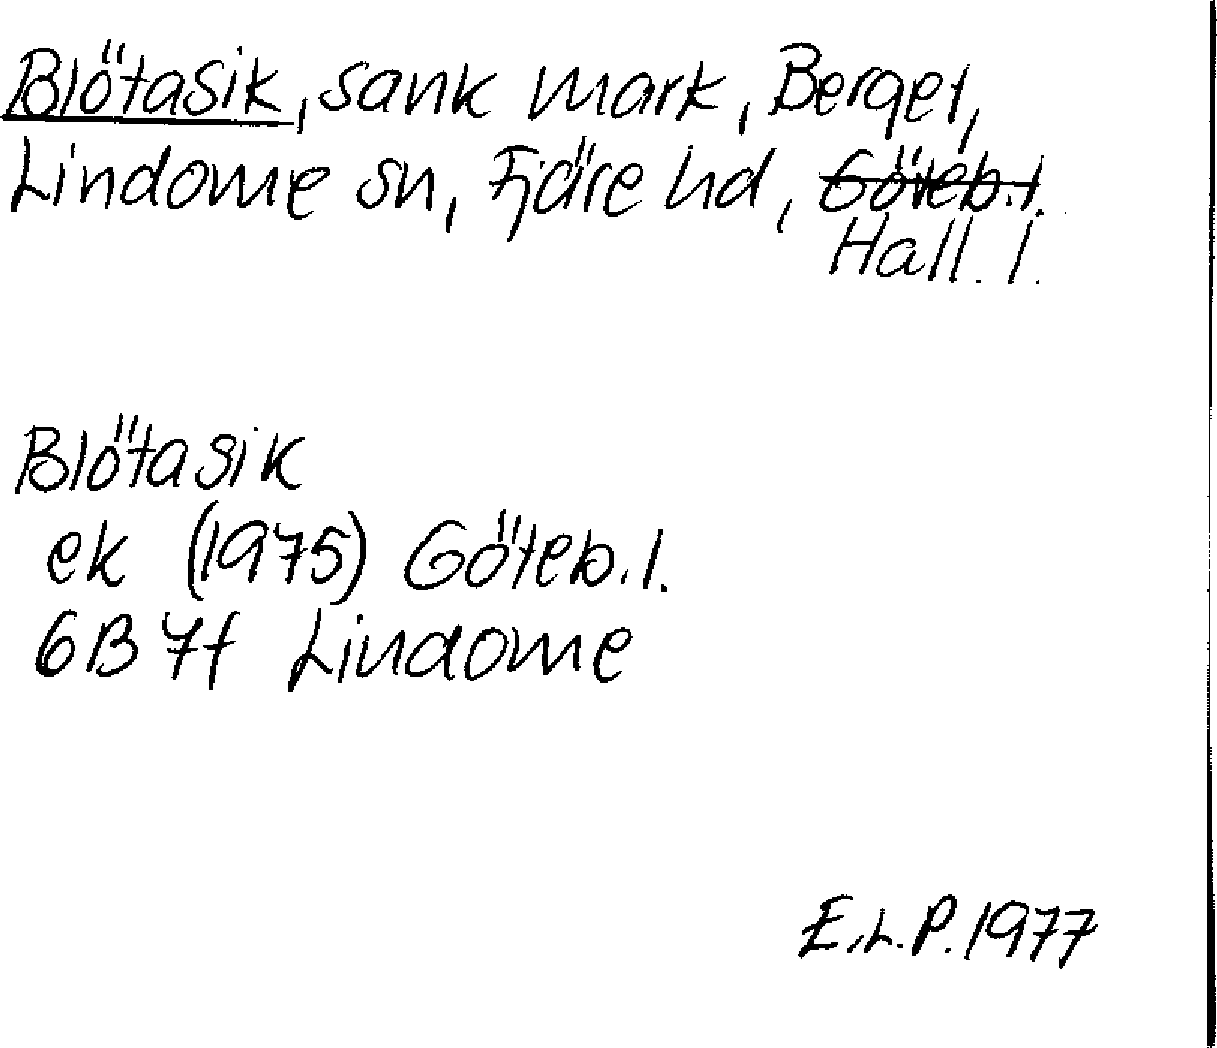 Blötasik, sank mark, Berget,
Lindome sn, Fjäre hd, Göteb.l.
Hall. l.
Blötasik
ek (1975) Göteb.l.
6B 7f Lindome
E.L.P. 1977